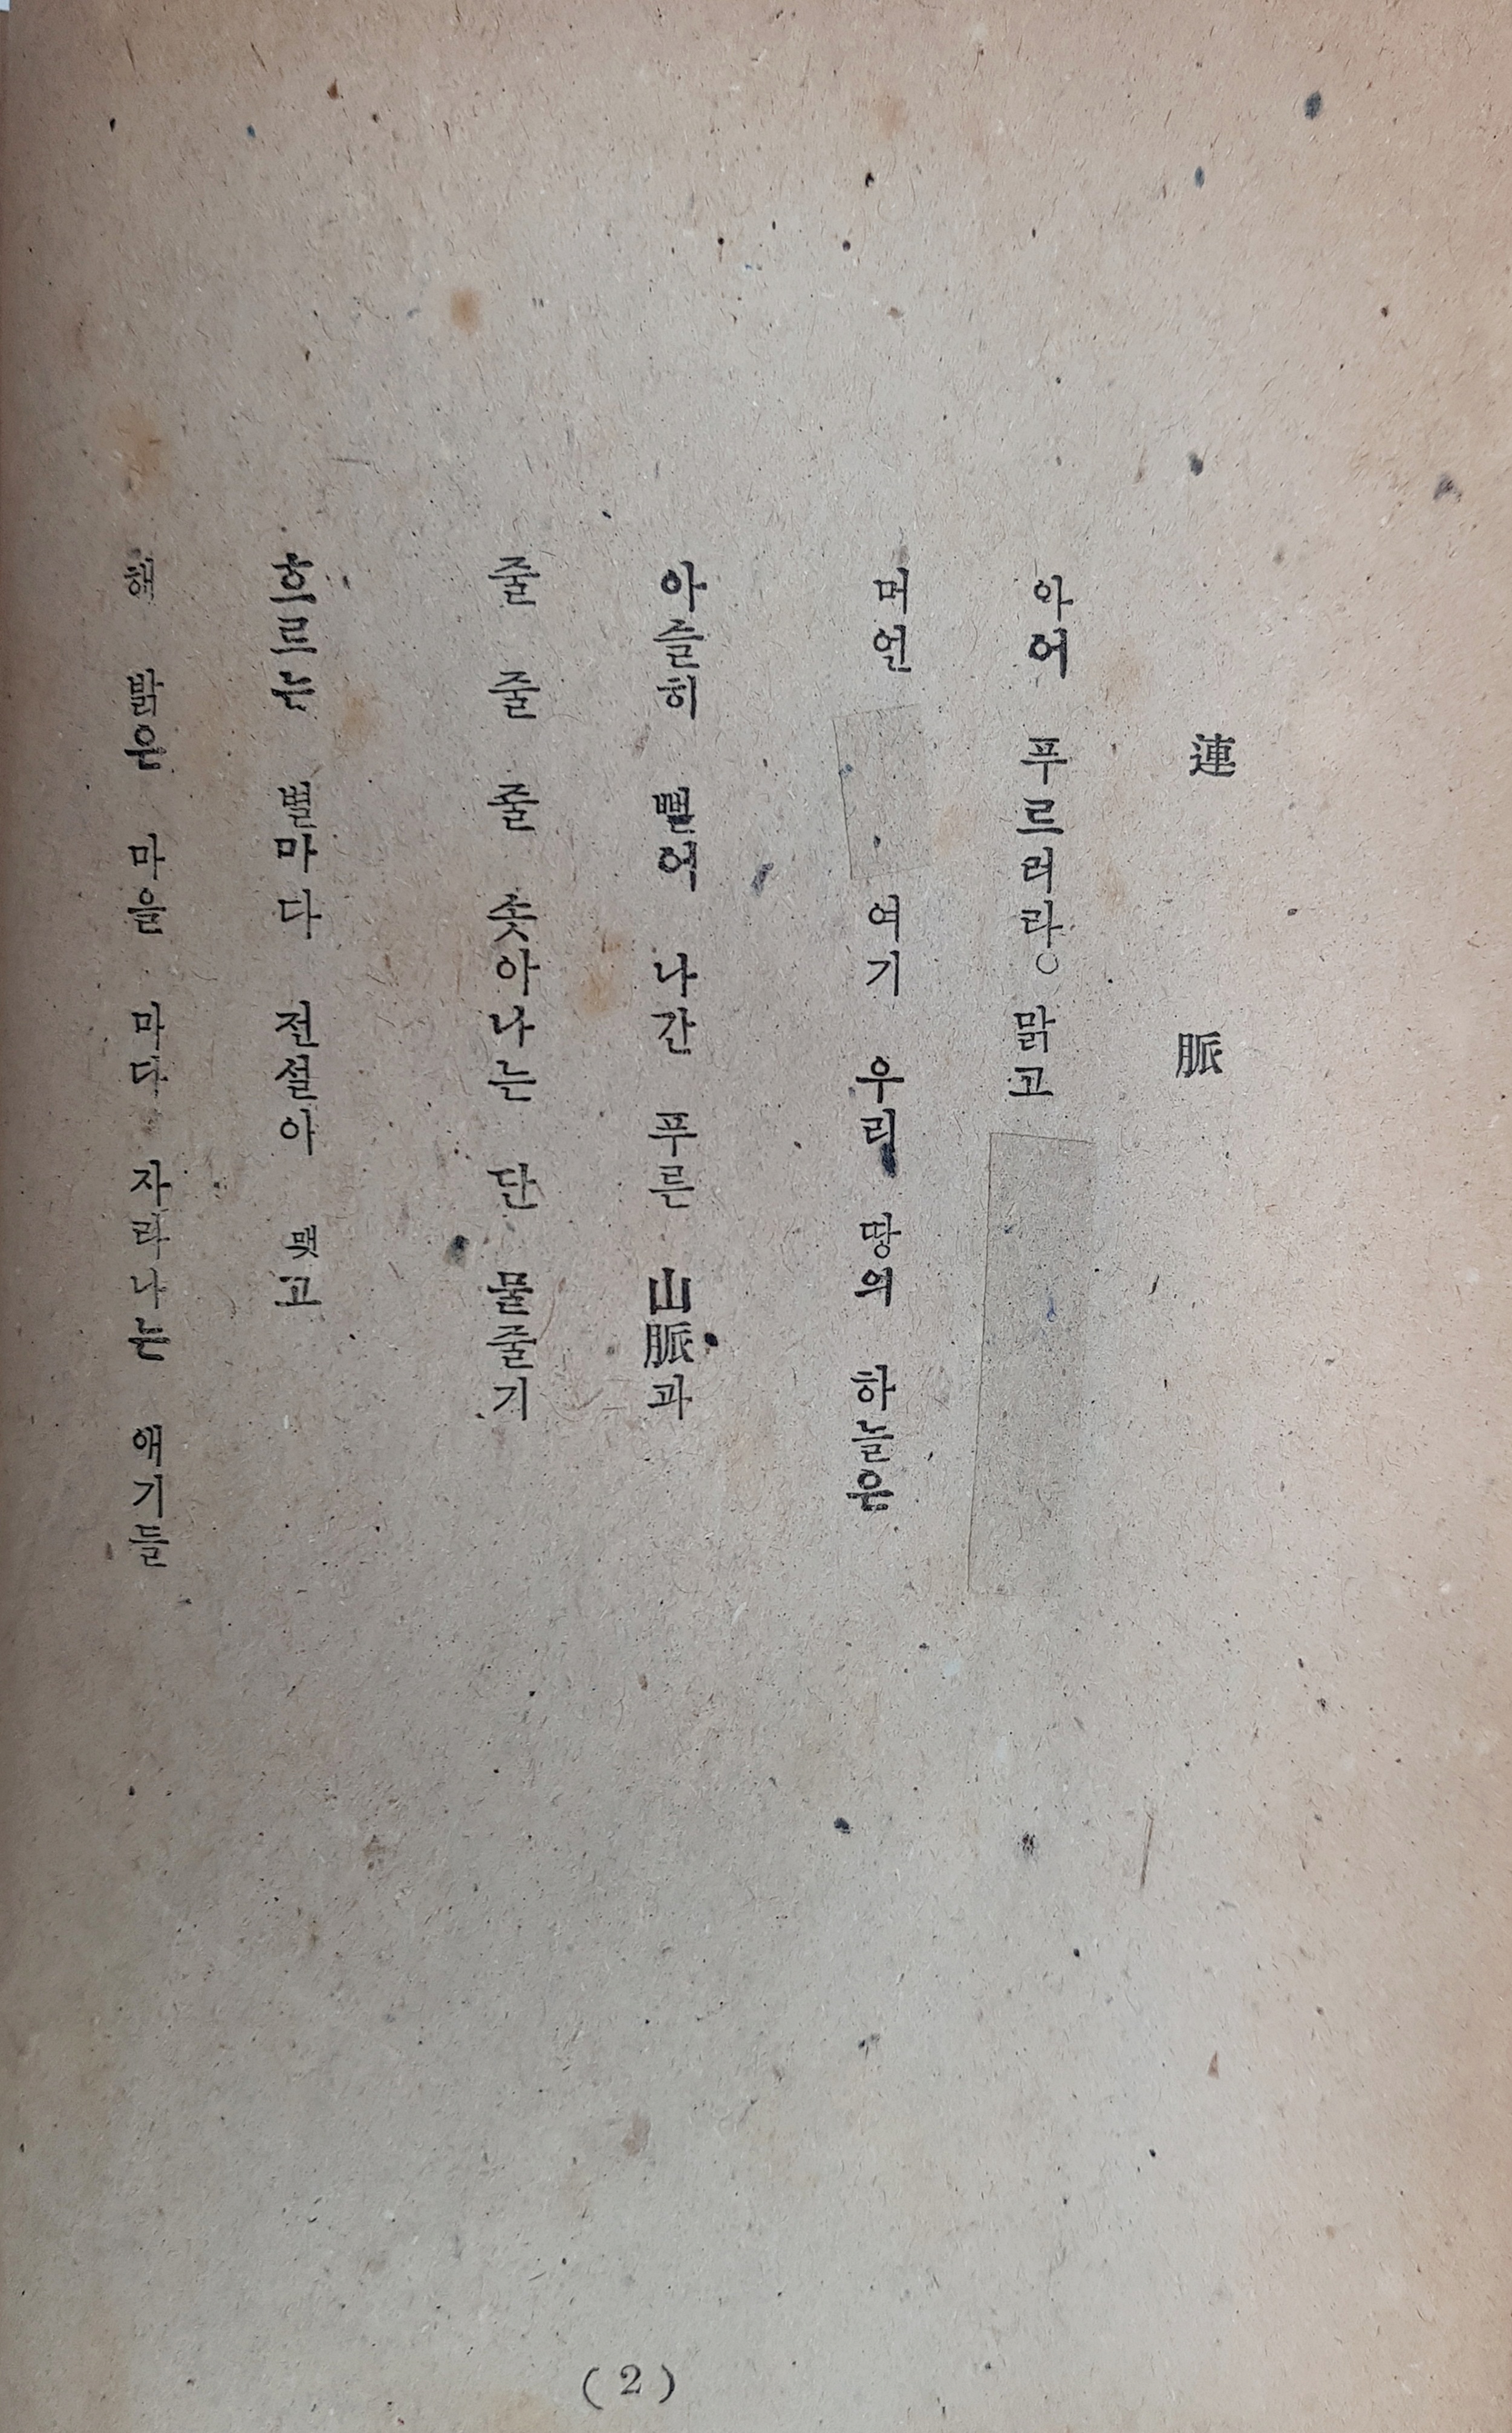 連脈
아어 푸르러라。 맑고
머언 여기 우리 땅의 하늘은
아슬히 뻗어 나간 푸른 山脈과
줄 줄 줄 솟아나는 단 물줄기
흐르는 벌마다 전설이 맺고
해 밝은 마을 마다 자라나는 얘기들
(2)